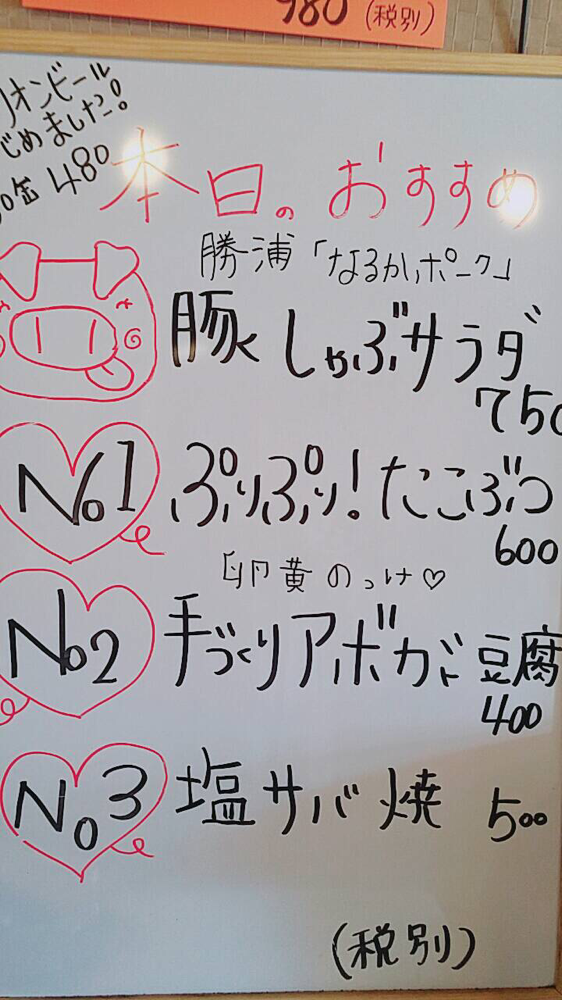 980 (税別)
オンビール
じめました!
缶 480
本日のおすすめ
勝浦「なるかポーク」
豚しゃぶサラダ
750
No1 ぷりぷり!たこぶつ
600
卵黄のっけ♡
No2 手づくりアボカド豆腐
400
No3 塩サバ焼 500
(税別)